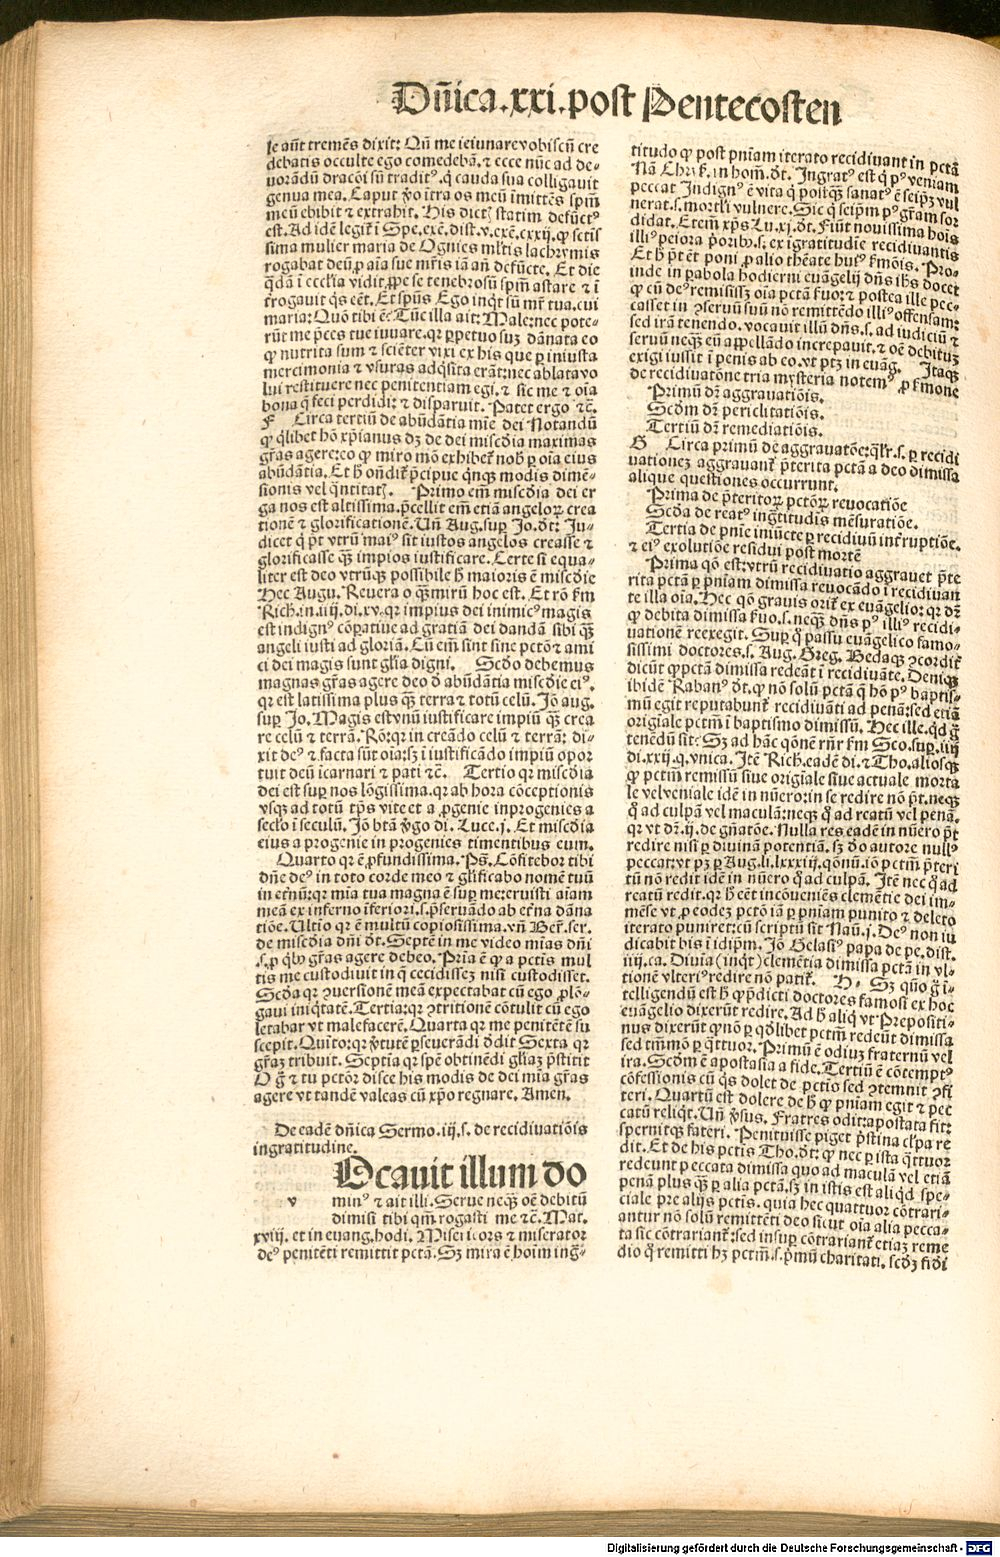 Dñica.xxi.post Pentecosten
le aũt tremẽs dixit: Qñ me ieiunare vobiscũ cre
debatis occulte ego comedebã.⁊ ecce nũc ad de-
vorãdũ dracõi sũ traditꝰ.q̇ cauda sua colligauit
genua mea. Caput ꝟo ĩtra os meũ ĩmittẽs spm̃
meũ ebibit ⁊ extrahit. His dictꝭ statim defũctꝰ
est. Ad idẽ legitͬ ĩ Spe.exẽ.dist.v.exẽ.cxxij.ꝙ sctĩs
sima mulier maria de Ognies mĩtis lachrymis
rogabat deũ ꝓ aĩa sue mr̃is iã añ defũcte. Et die
q̇dã ĩ eccĺia vidit ꝓpe se tenebrosũ spm̃ astare ⁊ ĩ
terogauit q̇s eẽt. Et spũs Ego inq̇t sũ mr̃ tua. cui
maria: Quõ tibi ẽ: Tũc illa ait: Male: nec pote-
rũt me p̃ces tue iuuare. qꝛ ꝑpetuo suꝫ dãnata eo
ꝙ nutrita sum ⁊ sciẽter vixi ex his que ꝑ iniusta
mercimonia ⁊ vsuras adq̇sita erãt: nec ablata vo
lui restituere nec penitentiam egi. ⁊ sic me ⁊ oĩa
bona q̃ feci perdidi: ⁊ disparuit. Patet ergo ⁊c̃.
F Circa tertiũ de abũdãtia mie dei Notandũ
ꝙ q̇libet hõ xp̃ianus dꝫ de dei miscd̃ia maximas
gr̃as agere: eo ꝙ miro mõ exhibetͬ nob̃ ꝑ oĩa eius
abũdãtia. Et h̃ oñditͬ p̃cipue q̇nqꝫ modis dimẽ-
sionis vel q̃ntitatꝭ. Primo em̃ miscd̃ia dei er
ga nos est altissima. p̃cellit em̃ etiã angeloꝝ crea
tionẽ ⁊ glorificationẽ. Vñ Aug. suꝑ Jo. d̃t: Ju-
dicet q̇ p̃t vtrũ maiꝰ sit iustos angelos creasse ⁊
glorificasse qᷓꝫ impios iustificare. Certe si equa-
liter est deo vtrũqꝫ possibile h̃ maioris ẽ miscd̃ie
Hec Augu. Reuera o qᷓꝫ mirũ hoc est. Et rõ ẜm
Rich.in.iiij.di.xv.qꝛ impius dei inimicꝰ magis
est indignꝰ cõparatiue ad gratiã dei dandã sibi qᷓꝫ
angeli iusti ad gloriã. Cũ em̃ sint sine pctõ ⁊ ami
ci dei magis sunt gĺia digni. Scďo debemus
magnas gr̃as agere deo ď abũdãtia miscd̃ie eiꝰ.
qꝛ est latissima plus qᷓꝫ terra ⁊ totũ celũ. Jõ aug.
suꝑ Jo. Magis est vnũ iustificare impiũ qᷓꝫ crea
re celũ ⁊ terrã. Rõ: qꝛ in creãdo celũ ⁊ terrã: di-
xit deꝰ ⁊ facta sũt oĩa: sꝫ ĩ iustificãdo impiũ opor
tuit deũ icarnari ⁊ pati ⁊c̃. Tertio qꝛ miscd̃ia
dei est suꝑ nos lõgissima. qꝛ ab hora cõceptionis
vsqꝫ ad totũ tp̃s vite et a ꝓgenie inprogenies a
seclo ĩ seculũ. Jõ btã ꝟgo di. Luce.j. Et miscd̃ia
eius a progenie in progenies timentibus eum.
Quarto qꝛ ẽ ꝓfundissima. Ps̃. Cõfitebor tibi
dñe deꝰ in toto corde meo ⁊ gĺificabo nomẽ tuũ
in etr̃nũ: qꝛ mĩa tua magna ẽ suꝑ me: eruisti aĩam
meã ex inferno ĩferiori.s.p̃seruãdo ab etr̃na dãna
tiõe. Ultio qꝛ ẽ multũ copiosissima. vñ Ber̃. ser.
de miscd̃ia dñi d̃t. Septẽ in me video mĩas dñi
.s.ꝓ q̇bꝰ gr̃as agere debeo. Pria ẽ ꝙ a pctĩs mul
tis me custodiuit in q̃ cecidissẽ nisi custodisset.
Scďa qꝛ ꝯuersionẽ meã expectabat cũ ego ꝓlõ-
gaui iniq̇tatẽ. Tertia: qꝛ ꝯtritionẽ cõtulit cũ ego
letabar vt malefacerẽ. Quarta qꝛ me penitẽtẽ su
scepit. Quĩto: qꝛ ꝟtutẽ ꝑseuerãdi ďdit Sexta qꝛ
gr̃aꝫ tribuit. Septĩa qꝛ spẽ obtinẽdi gĺiaꝫ p̃stitit
O g̊ ⁊ tu pctõr disce his modis de dei mĩa gr̃as
agere vt tandẽ valeas cũ xp̃o regnare. Amen.
De eadẽ dñica Sermo.iij.s. de recidiuatiõis
ingratitudine.
Ocauit illum do
v
minꝰ ⁊ ait illi. Serue neqꝫ oẽ debitũ
dimisi tibi qm̃ rogasti me ⁊c̃. Mat.
xviij. et in euang. hodi. Misericors ⁊ miserator
deꝰ penitẽti remittit pctã. Sꝫ mira ẽ hoĩm ing̃-
titudo ꝙ post pnĩam iterato recidiuant in pctã
Nã Chriš. in hom̃. d̃t. Ingratꝰ est q̇ pꝰ veniam
peccat Indignꝰ ẽ vita q̇ postqᷓꝫ sanatꝰ ẽ seipꝫ vul
nerat.s.mortĺi vulnere. Sic q̇ seip̃m pꝰ gr̃am sor
didat. Etem̃ xp̃s Lu.xj. d̃t. Fiũt nouissima hoĩs
illiꝰ peiora p̃oribꝰ.s. ex igratitudĩe recidiuantis
Et h̃ p̃t ẽt poni ꝓ alio thẽate huiꝰ ẜmõis. Pro-
inde in ꝑabola hodierni euãgelij dñs iħs docet
ꝙ cũ deꝰ remisissꝫ oĩa pctã ẜuo: ⁊ postea ille pec-
casset in ꝯseruũ suũ nõ remittẽdo illiꝰ offensam:
sed irã tenendo. vocauit illũ dñs.s. ad iudiciũ ⁊
seruũ neqꝫ eũ appellãdo increpauit. ⁊ oẽ debituꝫ
exigi iussit ĩ penis ab eo. vt ptꝫ in euãg. Itaqꝫ
de recidiuatõne tria mysteria notemꝰ ꝓ ẜmone
Primũ dr̃ aggrauatiõis.
Scďm dr̃ periclitatiõis.
Tertiũ dr̃ remediatiõis.
G Circa primũ de aggrauatõe: q̇lr̃.s. ꝑ recidi
uationeꝫ aggrauantͬ p̃terita pctã a deo dimissa
alique questiones occurrunt.
Prima de p̃teritoꝝ pctõꝝ reuocatiõe
Scďa de reatꝰ ingr̃titudis mẽsuratiõe.
Tertia de pnĩe iniũcte ꝑ recidiuũ inťruptiõe.
⁊ eiꝰ exolutiõe residui post mortẽ
Prima qõ est: vtrũ recidiuatio aggrauet p̃te
rita pctã ꝑ pniam dimissa reuocãdo ĩ recidiuan
te illa oĩa. Hec qõ grauis oritͬ ex euãgelio: qꝛ dꝫ
ꝙ debita dimissa ẜuo.s. neqꝫ dñs pꝰ illiꝰ recidi-
uationẽ reexegit. Suꝑ q̇ passu euãgelico famo-
sissimi doctores.s. Aug. Greg. Bedaqꝫ ꝯcorditͬ
dicũt ꝙ pctã dimissa redeãt ĩ recidiuãte. Deniqꝫ
ibidẽ Rabanꝰ d̃t. ꝙ nõ solũ pctã q̃ hõ pꝰ baptis-
mũ egit reputabuntͬ recidiuãti ad penã: sed etiã
origiale pctm̃ ĩ baptismo dimissũ. Hec ille. q̇d g̊
tenẽdũ sit: Sꝫ ad hãc qõnẽ rñr ẜm Sco. suꝑ.iiij
di.xxij.q.vnica. Itẽ Rich. eadẽ di. ⁊ Tho. aliosqꝫ
ꝙ pctm̃ remissũ siue origiale siue actuale morta
le vel veniale idẽ in nũero: in se redire nõ p̃t. neqꝫ
q̇ ad culpã vel maculã: neqꝫ q̇ ad reatũ vel penã.
qꝛ vt dr̃.ij. de gñatõe. Nulla res eadẽ in nũero p̃t
redire nisi ꝑ diuinã potentiã. sꝫ ďo autore nullꝰ
peccat: vt pꝫ ꝑ Aug. li.lxxxiij.qõnũ. iõ pctm̃ p̃teri
tũ nõ redit idẽ in nũero q̇ ad culpã. Itẽ nec q̇ ad
reatũ redit. qꝛ h̃ eẽt incõueniẽs clemẽtie dei im-
mẽse vt ꝓ eodeꝫ pctõ iã ꝑ pniam punito ⁊ deleto
iterato puniret: cũ scriptũ sit Naũ.j. Deꝰ non iu
dicabit his ĩ idip̃m. Jõ Gelasiꝰ papa de pe. dist.
iiij.ca. Diuĩa (inq̇t) clemẽtia dimissa pctã in vl-
tionẽ vlteriꝰ redire nõ patitͬ. H. Sꝫ quõ g̊ ĩ-
telligendũ est h̃ ꝙ p̃dicti doctores famosi ex hoc
euãgelio dixerũt redire. Ad h̃ aliq̇ vt Prepositi-
nus dixerũt ꝙ nõ ꝑ qḋlibet pctm̃ redeũt dimissa
sed tm̃mõ ꝑ q̃ttuor. Primũ ẽ odiuꝫ fraternũ vel
ira. Scďm ẽ apostasia a fide. Tertiũ ẽ cõtemptꝰ
cõfessionis cũ q̇s dolet de pctĩo sed ꝯtemnit ꝯfi
teri. Quartũ est dolere de h̃ ꝙ pnĩam egit ⁊ pec
catũ reliq̇t. Vñ ꝟsus. Fratres odit: apostata fit:
spernitqꝫ fateri. Penituisse piget p̃stina cĺpa re
dit. Et de his pctĩs Tho. d̃t: ꝙ nec ꝑ ista q̃ttuor
redeunt peccata dimissa quo ad maculã vel etiã
penã plus qᷓꝫ ꝑ alia pctã. sꝫ in istis est aliq̇d spe-
ciale pre alijs pctĩs. quia hec quattuor cõtrari-
antur nõ solũ remittẽti deo sicut oĩa alia pecca-
ta sic cõtrariantͬ: sed insuꝑ cõtrariantͬ etiaꝫ reme
dio q̇ remitti hꝫ pctm̃.s. p̃mũ charitati. scďꝫ fidi
Digitalisierung gefördert durch die Deutsche Forschungsgemeinschaft - DFG